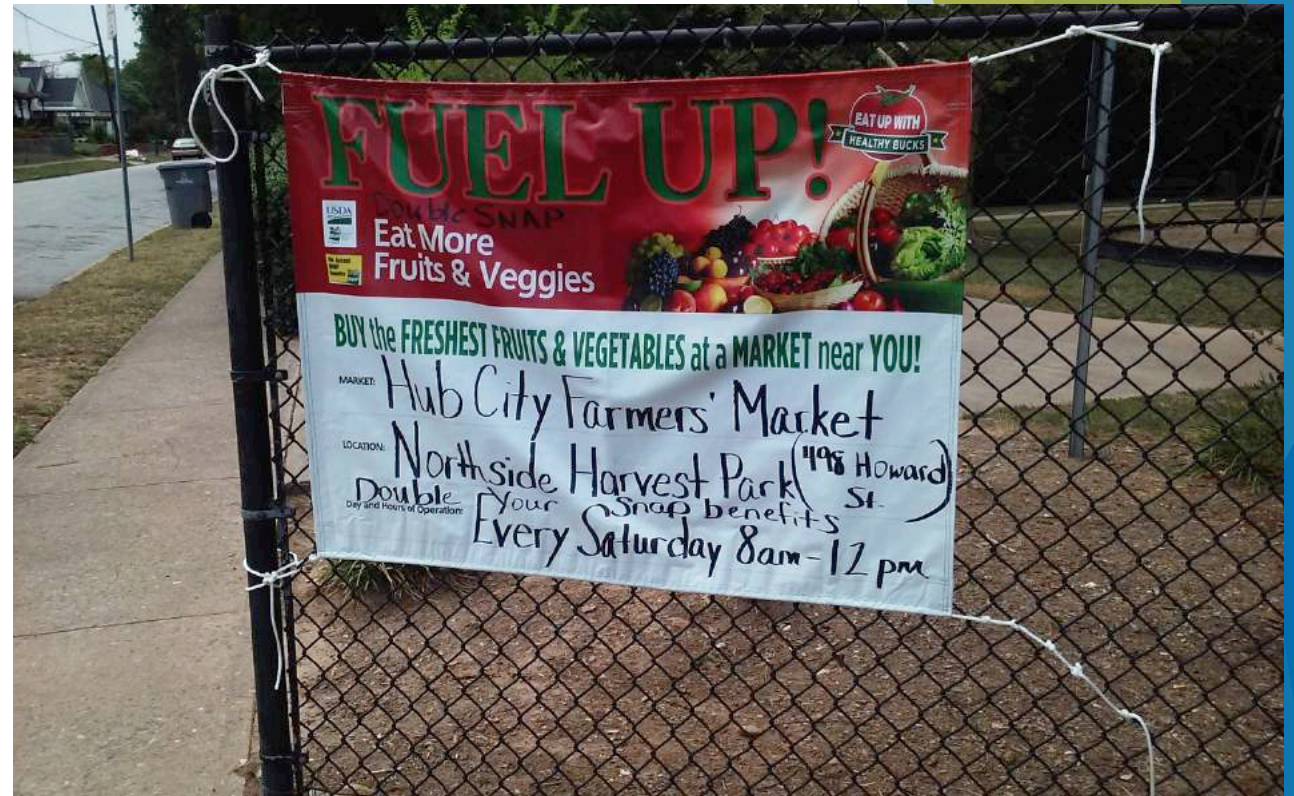 FUEL UP!
EAT UP WITH
HEALTHY BUCKS
Double SNAP
USDA
Eat More
Fruits & Veggies
BUY the FRESHEST FRUITS & VEGETABLES at a MARKET near YOU!
MARKET: Hub City Farmers' Market
LOCATION: Northside Harvest Park (498 Howard
St.)
Double Your Snap benefits
Day and Hours of Operation: Every Saturday 8am-12pm